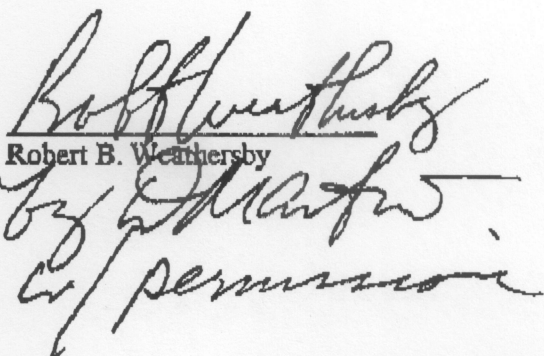 Robt Weathersby
Robert B. Weathersby
by D Martin
w/ permission